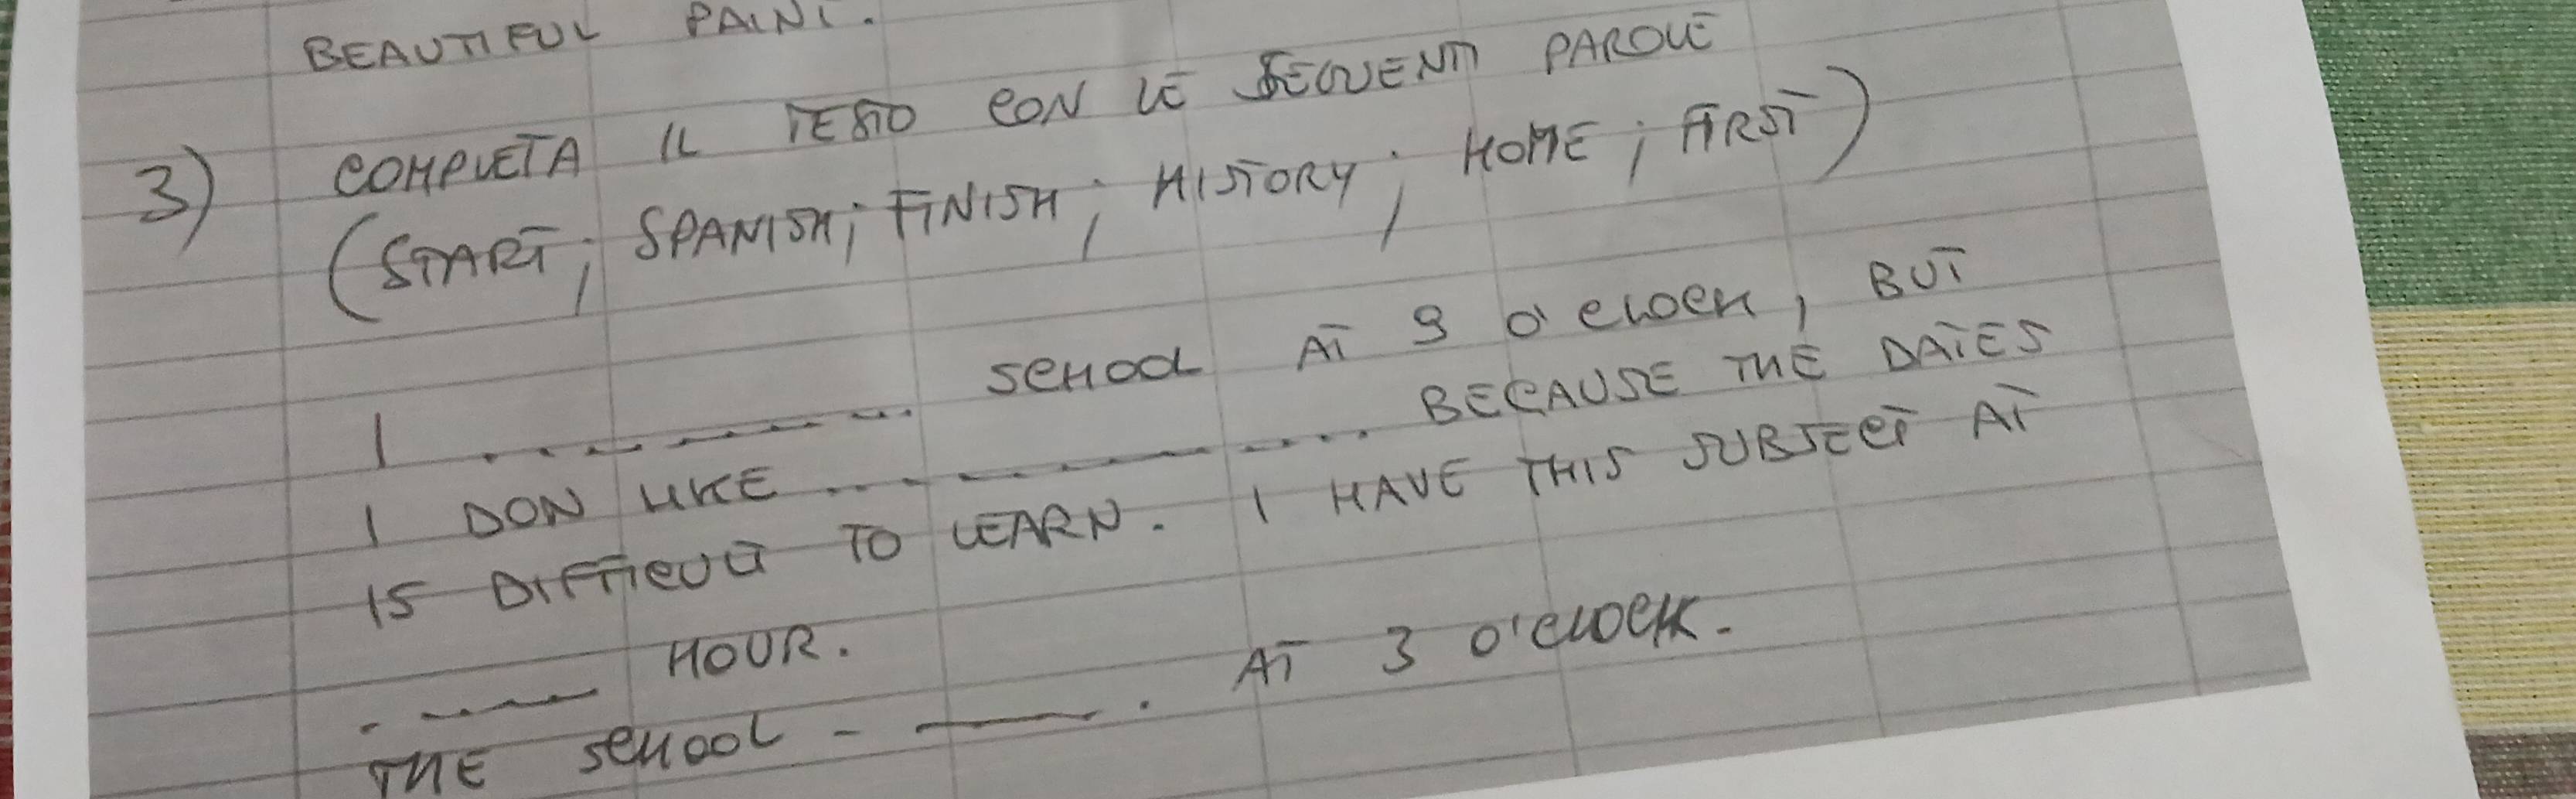 BEAUTIFUL PAINT.
3) COMPLETA IL TESTO CON LE SEQUENTI PAROLE
(START; SPANISH; FINISH; HISTORY; HOME; FIRST)
I .......... SCHOOL AT 9 O'CLOCK, BUT
I DON LIKE .......... BECAUSE THE DATES
IS DIFFICULT TO LEARN. I HAVE THIS SUBJECT AT
.......... HOUR.
THE SCHOOL .......... AT 3 O'CLOCK.